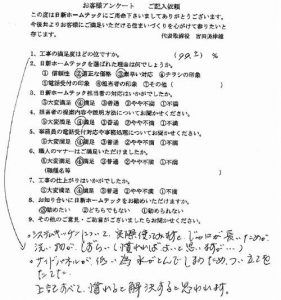 お客様アンケート　ご記入依頼
この度は日新ホームテックにご用命下さいましてありがとうございます。
今後よりお客様にご満足いただける住まいづくりを心がけて参りたいと
存じます。
代表取締役　吉田美津雄
1. 工事の満足度はどの位ですか。（99.2）%
2. 日新ホームテックを選ばれた理由は何でしょうか。
①信頼性 ②適正な価格 ③兼早い対応 ④チラシの印象
⑤電話受付の印象 ⑥担当者の印象 ⑦その他（　）
3. 日新ホームテック担当者の対応はいかがでしたか。
①大変満足 ②満足 ③普通 ④やや不満 ⑤不満
4. 担当者の提案内容や説明方法についてお聞かせください。
①大変満足 ②満足 ③普通 ④やや不満 ⑤不満
5. 事務員の電話受付対応や事務処理についてお聞かせください。
①大変満足 ②満足 ③普通 ④やや不満 ⑤不満
6. 職人のマナーはご満足いただけましたか。
①大変満足 ②満足 ③普通 ④やや不満 ⑤不満
（職種名等　）
7. 工事の仕上がりはいかがでしたか。
①大変満足 ②満足 ③普通 ④やや不満 ⑤不満
8. お知り合いに日新ホームテックをお勧めいただけますか。
①勧めたい ②どちらでもない ③勧められない
9. その他のご意見・ご助言がございましたらお聞かせください。
システムキッチンについて、実際使ってみますと、じゃ口が長いためか
洗い物が、しずらい（慣ればよいと思いますが…）
サイドパネルが、低い為　水がとんでしまうため、つい立てを
たてた。
上記すべて、慣れると解決すると思われます。